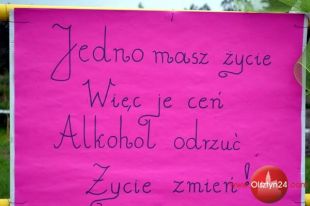 Jedno masz życie
Więc je ceń
Alkohol odrzuć
Życie zmień!
www.Olsztyn24.com